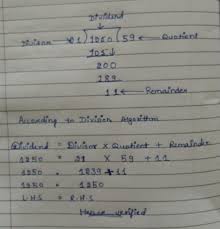 Dividend
Divison 21) 1250 (59 ← Quotient
105↓
200
189
11 ← Remainder
According to Division Algorithm
Dividend = Divisor x Quotient + Remainder
1250 = 21 x 59 + 11
1250 = 1239 + 11
1250 = 1250
L.H.S = R.H.S
Hence verified